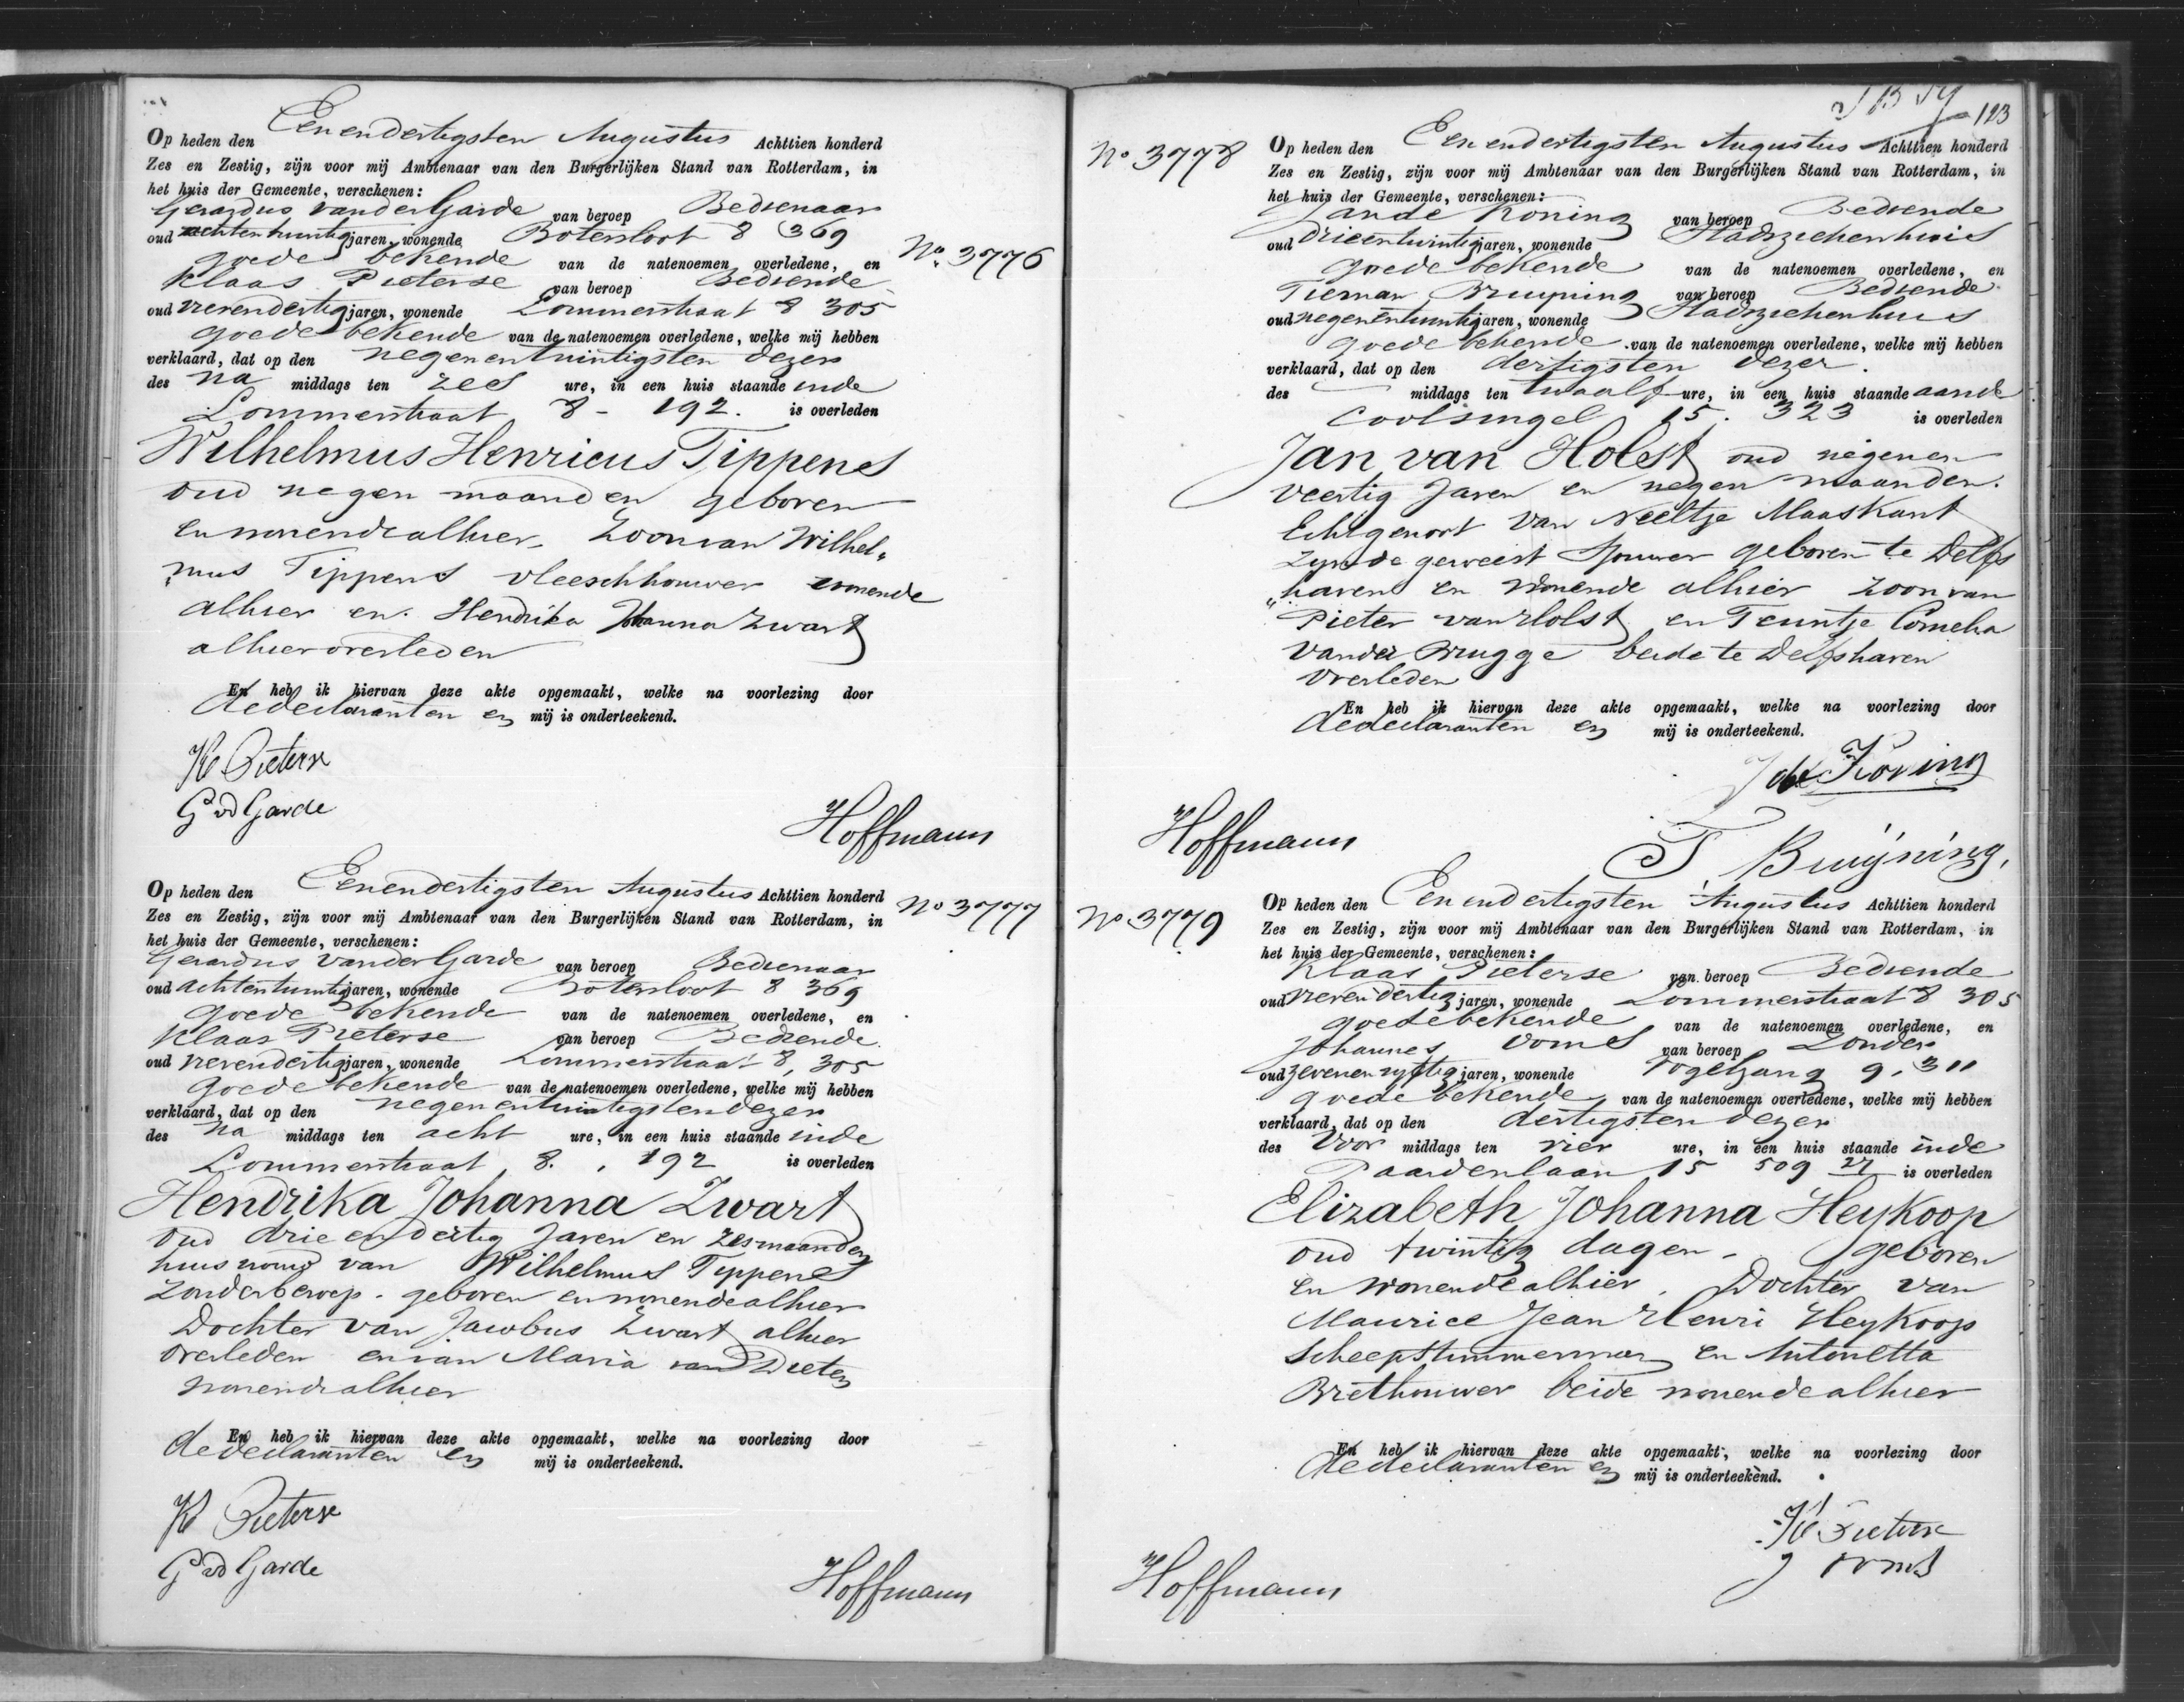 Op heden den Eenendertigsten Augustus Achttien honderd
Zes en Zestig, zijn voor mij Ambtenaar van den Burgerlijken Stand van Rotterdam, in
het huis der Gemeente, verschenen:
Gerardus van der Garde van beroep Bedienaar
oud achtentwintig jaren, wonende Botersloot 8 369
No. 3776
goede bekende van de natenoemen overledene, en
Klaas Pieterse van beroep Bediende
oud vierendertig jaren, wonende Lommerstraat 8 305
goede bekende van de natenoemen overledene, welke mij hebben
verklaard, dat op den negenentwintigsten dezer
des na middags ten zes ure, in een huis staande in de
Lommerstraat 8 - 192. is overleden
Wilhelmus Henricus Tippenes
oud negen maanden geboren
en wonende alhier, Zoon van Wilhel„
„mus Tippens vleeschhouwer wonende
alhier en Hendrika Johanna Zwart
alhier overleden
En heb ik hiervan deze akte opgemaakt, welke na voorlezing door
de declaranten en mij is onderteekend.
Kl Pieterse
G vd Garde
Hoffmann
Op heden den Eenendertigsten Augustus Achttien honderd
No 3777
Zes en Zestig, zijn voor mij Ambtenaar van den Burgerlijken Stand van Rotterdam, in
het huis der Gemeente, verschenen:
Gerardus van der Garde van beroep Bedienaar
oud achtentwintig jaren, wonende Botersloot 8 369
goede bekende van de natenoemen overledene, en
Klaas Pieterse van beroep Bediende
oud vierendertig jaren, wonende Lommerstraat 8, 305
goede bekende van de natenoemen overledene, welke mij hebben
verklaard, dat op den negenentwintigsten dezer
des na middags ten acht ure, in een huis staande in de
Lommerstraat 8. , 192 is overleden
Hendrika Johanna Zwart
oud drie en dertig Jaren en zes maanden
huisvrouw van Wilhelmus Tippenes
zonder beroep. geboren en wonende alhier
Dochter van Jacobus Zwart alhier
overleden en van Maria van Dieten
wonende alhier
En heb ik hiervan deze akte opgemaakt, welke na voorlezing door
de declaranten en mij is onderteekend.
Kl Pieterse
G vd Garde
Hoffmann
123
No 3778
Op heden den Eenendertigsten Augustus Achttien honderd
Zes en Zestig, zijn voor mij Ambtenaar van den Burgerlijken Stand van Rotterdam, in
het huis der Gemeente, verschenen:
Jan de Koning van beroep Bediende
oud drieentwintig jaren, wonende Stadsziekenhuis
goede bekende van de natenoemen overledene, en
Tieman Bruyning van beroep Bediende
oud negenentwintig jaren, wonende Stadsziekenhuis
goede bekende van de natenoemen overledene, welke mij hebben
verklaard, dat op den dertigsten dezer.
des middags ten twaalf ure, in een huis staande aan de
Coolsingel 15. 323 is overleden
Jan van Holst oud negenen
veertig Jaren en negen maanden.
Echtgenoot van Neeltje Maaskant
zynde geweest Sjouwer geboren te Delfs
„haven en wonende alhier zoon van
Pieter van Holst en Teuntje Cornelia
van der Brugge beide te Delfshaven
overleden
En heb ik hiervan deze akte opgemaakt, welke na voorlezing door
de declaranten en mij is onderteekend.
J de Koning
Hoffmann
T Bruijning,
No 3779
Op heden den Eenendertigsten Augustus Achttien honderd
Zes en Zestig, zijn voor mij Ambtenaar van den Burgerlijken Stand van Rotterdam, in
het huis der Gemeente, verschenen:
Klaas Pieterse van beroep Bediende
oud vierendertig jaren, wonende Lommerstraat 8 305
goede bekende van de natenoemen overledene, en
Johannes Ooms van beroep Zonder
oud zevenenvyftig jaren, wonende Vogelzang 9. 311
goede bekende van de natenoemen overledene, welke mij hebben
verklaard, dat op den dertigsten dezer
des voor middags ten vier ure, in een huis staande in de
Paardenlaan 15 509 27 is overleden
Elizabeth Johanna Heykoop
oud twintig dagen - geboren
en wonende alhier. Dochter van
Maurice Jean Henri Heykoop
Scheepstimmerman en Antonetta
Brethouwer beide wonende alhier
En heb ik hiervan deze akte opgemaakt, welke na voorlezing door
de declaranten en mij is onderteekend.
Kl Pieterse
J Ooms
Hoffmann